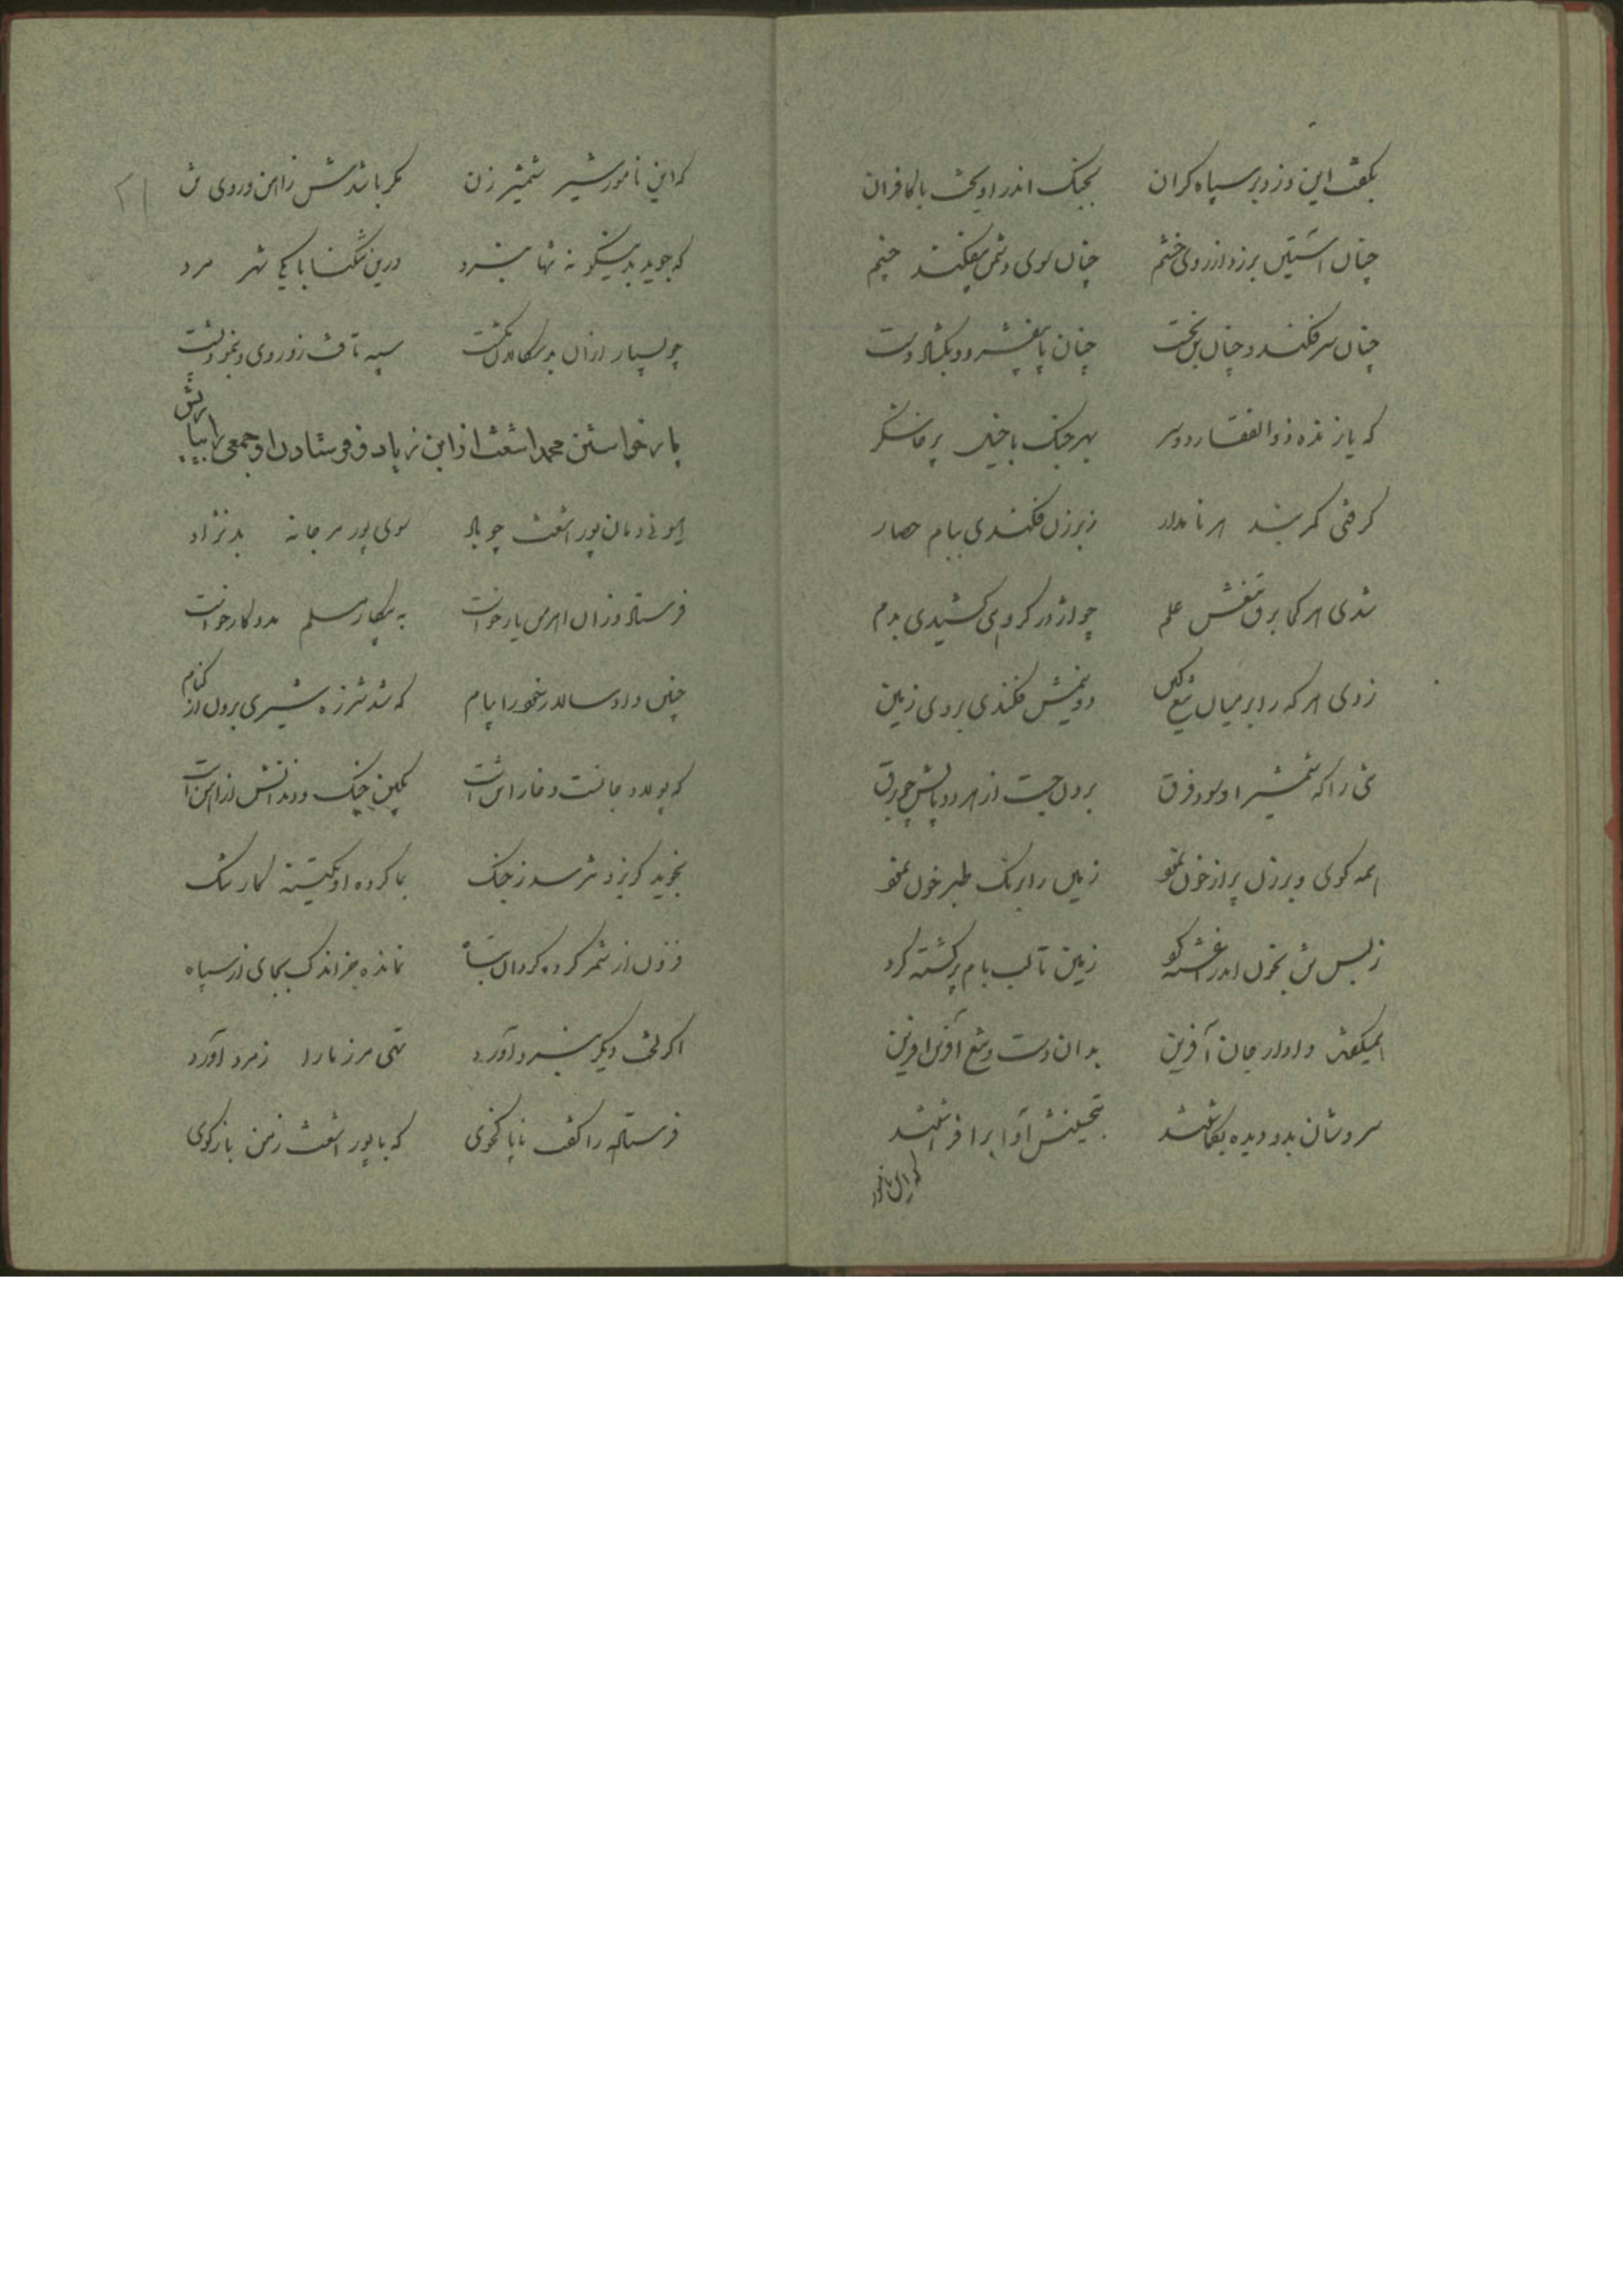 بگفت این و زد بر سپاه گران بجنگ اندر آویخت با کافران
چنان آستین برزد از روی خشم چنان سوی دشمن بیفکند چشم
چنان سر فکند و چنان تن بخست چنان پا بیفشرد و بگشاد دست
که یازنده ذوالفقار دوسر بهر جنگ با خیل پرخاشگر
گرفتی کمربند هر نامدار ز برزن فکندی ببام حصار
شدی هر کجا برق تیغش علم چو اژدر گروهی کشیدی بدم
زدی هر که را بر میان تیغ کین دونیمش فکندی بروی زمین
تنی را که شمشیر او سود فرق برون جست از هر دو پایش چو برق
همه کوی و برزن پر از خون نمود زمین را برنگ طبرخون نمود
ز بس تن بخون اندر آغشته کرد زمین تا لب بام پر کشته کرد
همیگفت دادار جان آفرین بدان دست و تیغ آفرین آفرین
سروشان بدو دیده بگماشتند بتحسینش آوا برافراشتند
که این نامور
که این نامور شیر شمشیر زن مگر باشدش ز آهن و روی تن
که جوید بدینگونه تنها نبرد درین تنگنا با یکی شهر مرد
چو بسیار از آن بدسگالان بکشت سپه تافت زو روی و بنمود پشت
یاری خواستن محمد اشعث از ابن زیاد و فرستادن او جمعی را بیاریش
هیونی دمان پور اشعث چو باد سوی پور مرجانه بدنژاد
فرستاد و زان اهرمن یار خواست به پیکار مسلم مددکار خواست
چنین داد سالار خود را پیام که شد شرزه شیری برون از کنام
که پولاد جانست و خارا تن است بکین چنگ و دندانش از آهن است
نجوید گریز و نترسد ز جنگ بما کرده او یکتنه کار تنگ
فزون از شمر کرد گردان تباه نمانده جز اندک بجای از سپاه
اگر لختی دیگر نبرد آورد تهی مرز ما را ز مرد آورد
فرستاده را گفت ناپاکخوی که با پور اشعث ز من باز گوی